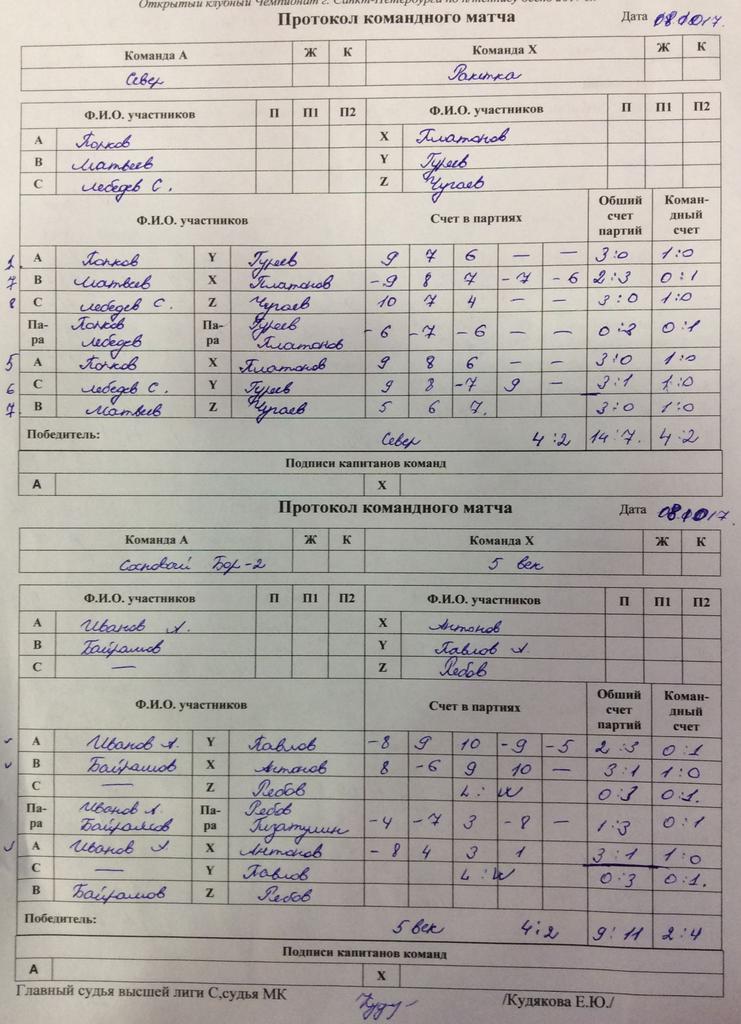 Открытый клубный Чемпионат г. Санкт-Петербурга по
Протокол командного матча Дата 08.10.17.
Команда А Ж К Команда Х Ж К
Север Ракетка
Ф.И.О. участников П П1 П2 Ф.И.О. участников П П1 П2
А Попков X Платонов
В Матвеев Y Гуреев
С Лебедев С. Z Чугаев
Ф.И.О. участников Счет в партиях Обший счет партий Коман-дный счет
А Попков Y Гуреев 9 7 6 – – 3:0 1:0
7 В Матвеев X Платонов -9 8 7 -7 -6 2:3 0:1
8 С Лебедев С. Z Чугаев 10 7 4 – – 3:0 1:0
Па-ра Попков Лебедев Па-ра Гуреев Платонов -6 -7 -6 – – 0:3 0:1
5 А Попков X Платонов 9 8 6 – – 3:0 1:0
6 С Лебедев С. Y Гуреев 9 8 -7 9 – 3:1 1:0
7. В Матвеев Z Чугаев 5 6 7. 3:0 1:0
Победитель: Север 4:2 14:7. 4:2
Подписи капитанов команд
А X
Протокол командного матча Дата 08.10.17.
Команда А Ж К Команда Х Ж К
Сосновый Бор-2 5 век
Ф.И.О. участников П П1 П2 Ф.И.О. участников П П1 П2
А Иванов А. X Антонов
В Байрамов Y Павлов А.
С — Z Рябов
Ф.И.О. участников Счет в партиях Обший счет партий Коман-дный счет
А Иванов А. Y Павлов -8 9 10 -9 -5 2:3 0:1
В Байрамов X Антонов 8 -6 9 10 – 3:1 1:0
С — Z Рябов L:W 0:3 0:1.
Па-ра Иванов А. Байрамов Па-ра Рябов Гизатулин -4 -7 3 -8 – 1:3 0:1
А Иванов А X Антонов -8 4 3 1 3:1 1:0
С — Y Павлов L:W 0:3 0:1.
В Байрамов Z Рябов
Победитель: 5 век 4:2 9:11 2:4
Подписи капитанов команд
А X
Главный судья высшей лиги С,судья МК /Кудякова Е.Ю./